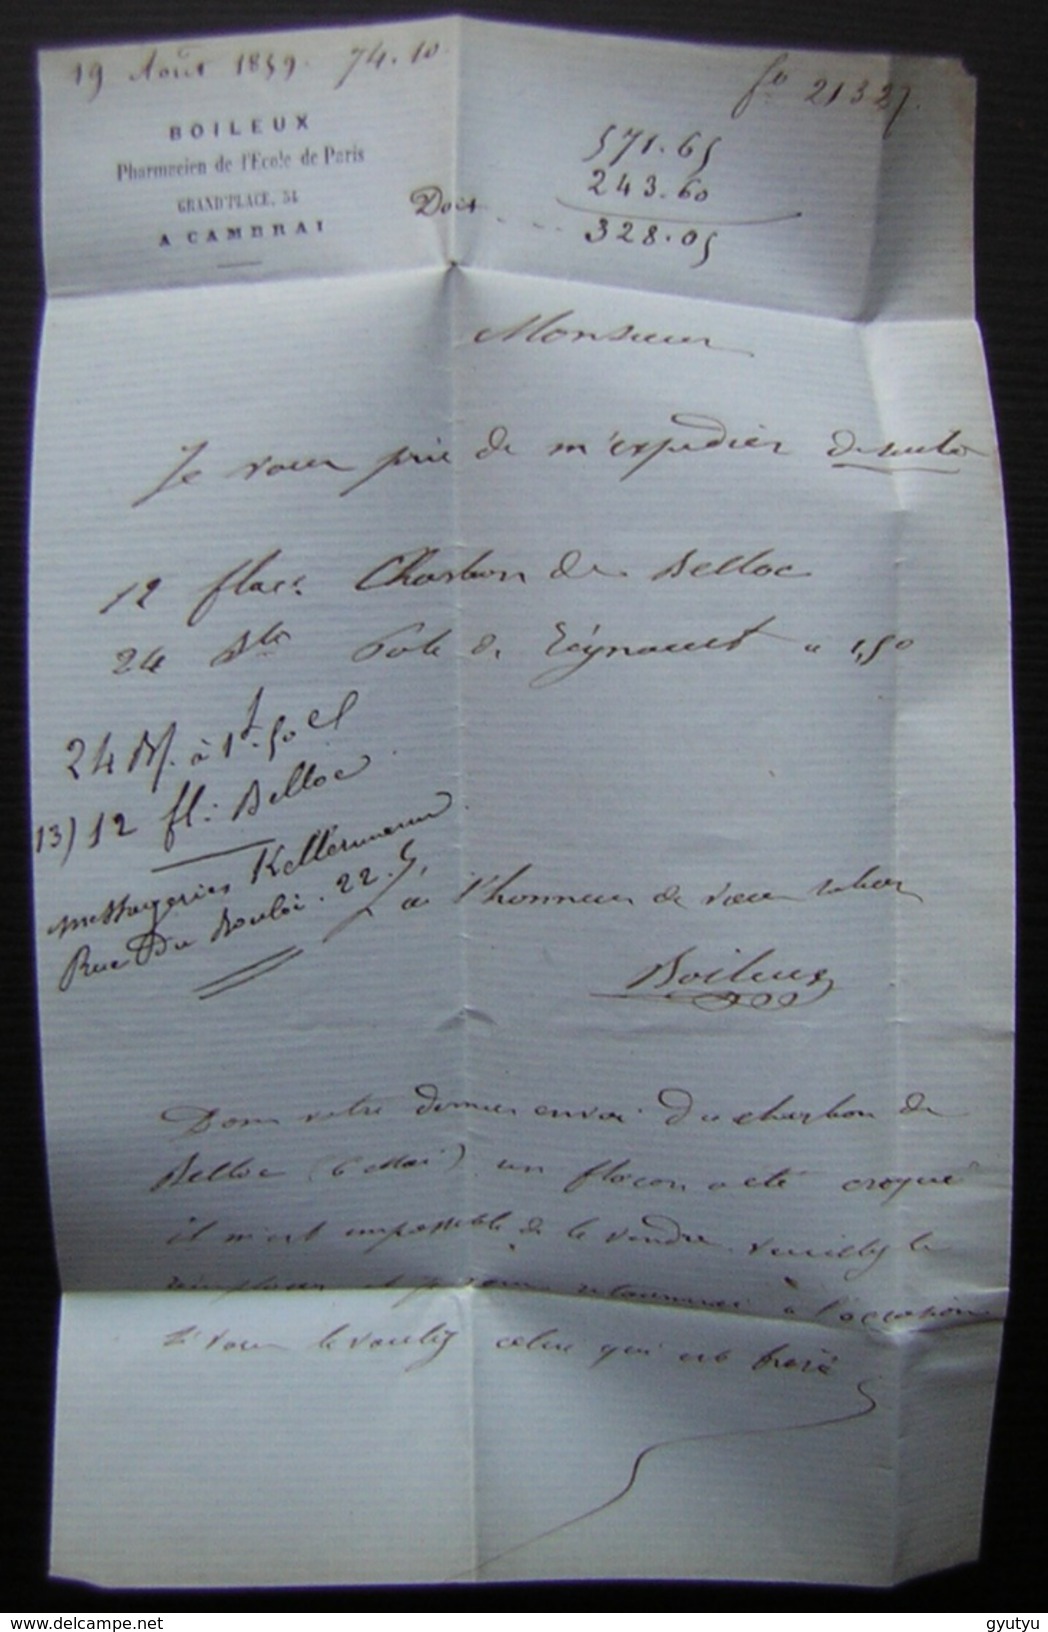 19 Août 1859. 74.10
fo 21327.
BOILEUX
Pharmacien de l'Ecole de Paris
GRAND'PLACE, 34
A CAMBRAI
571.65
243.60
Doit 328.05
Monsieur
Je vous prie de m'expedier de suite
12 flac. Charbon de Belloc
24 Btes Pate de Regnault a 1,50
24 Bf. à 1f.50 et
13) 12 fl. Belloc
messageries Kellermann
Rue du Bouloi. 22.
J'ai l'honneur de vous saluer
Boileux
Dans votre dernier envoi du charbon de
Belloc (6 Mai) un flacon a été croqué
il m'est impossible de le vendre. veuillez le
remplacer et je vous retournerai à l'occasion
si vous le voulez celui qui est brisé
gyutyu
delcampe.net